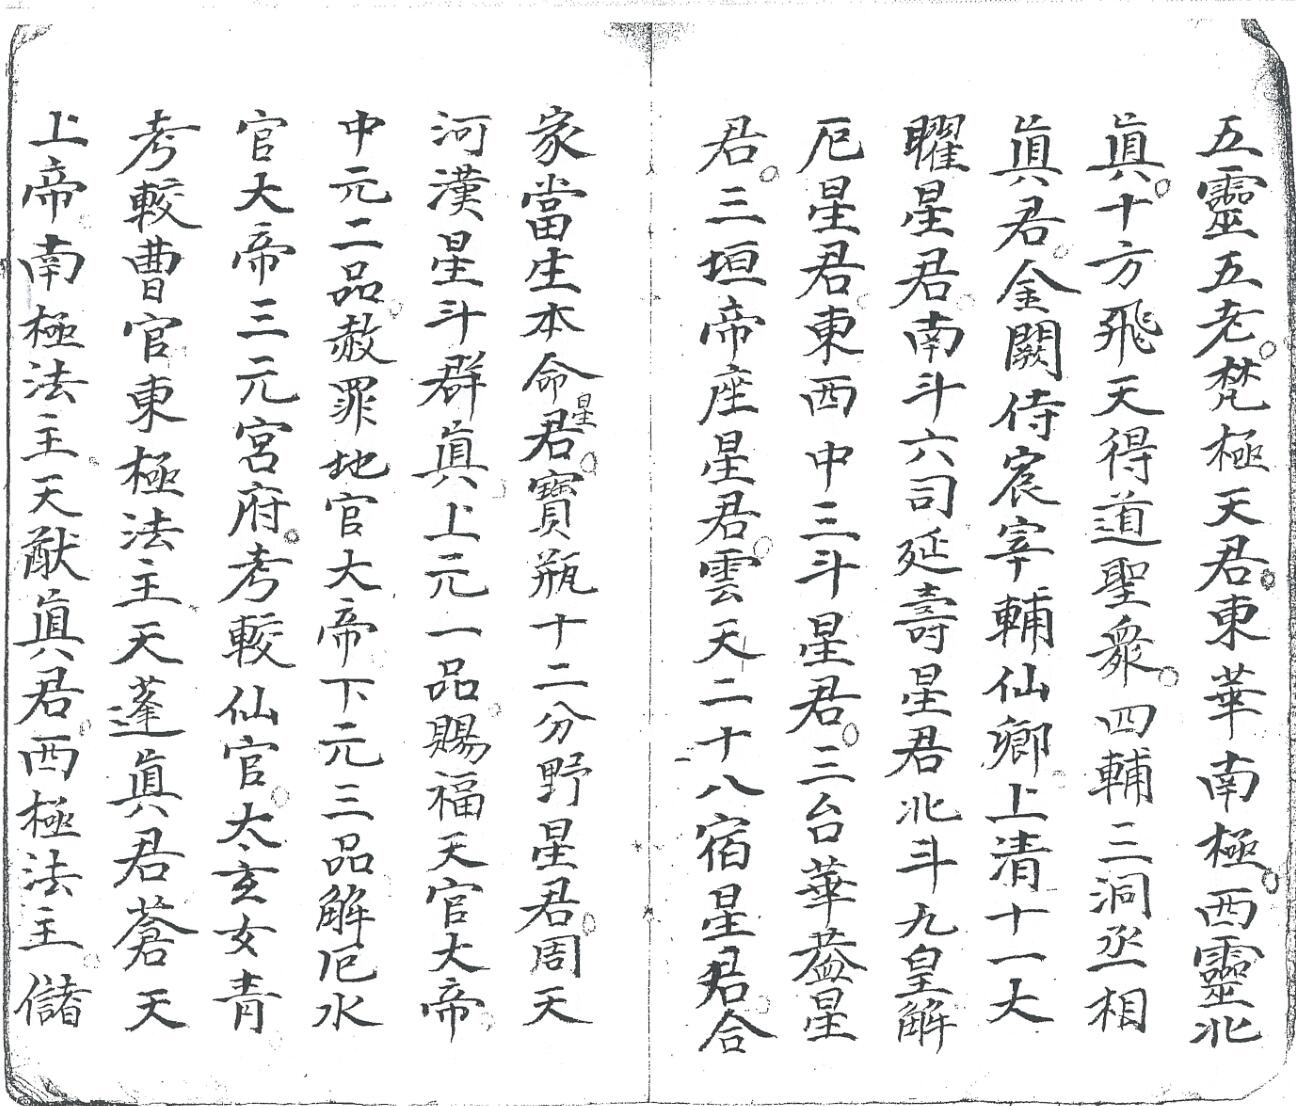 五靈五老梵極天君東華南極西靈北
眞十方飛天得道聖衆四輔三洞丞相
眞君金闕侍宸宰輔仙卿上清十一大
曜星君南斗六司延壽星君北斗九皇解
厄星君東西中三斗星君三台華蓋星
君三垣帝座星君雲天二十八宿星君合
家當生本命星君寶瓶十二分野星君周天
河漢星斗群眞上元一品賜福天官大帝
中元二品赦罪地官大帝下元三品解厄水
官大帝三元宮府考較仙官太玄女青
考較曹官東極法主天蓬眞君蒼天
上帝南極法主天猷眞君西極法主儲